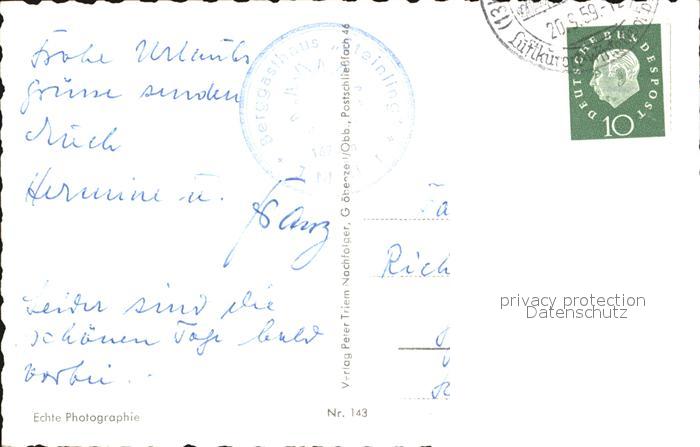 Frohe Urlaubs
grüsse senden
Euch
Hermine u.
Franz
Leider sind die
schönen Tage bald
vorbei..
Echte Photographie
Berggasthaus "Steinling"
Verlag Peter Triem Nachfolger, G öbenze l/Obb., Postschließfach 46
Nr. 143
20.5.59.-12
Luftkurort
DEUTSCHE BUNDESPOST
10
Fa
Rich
privacy protection
Datenschutz